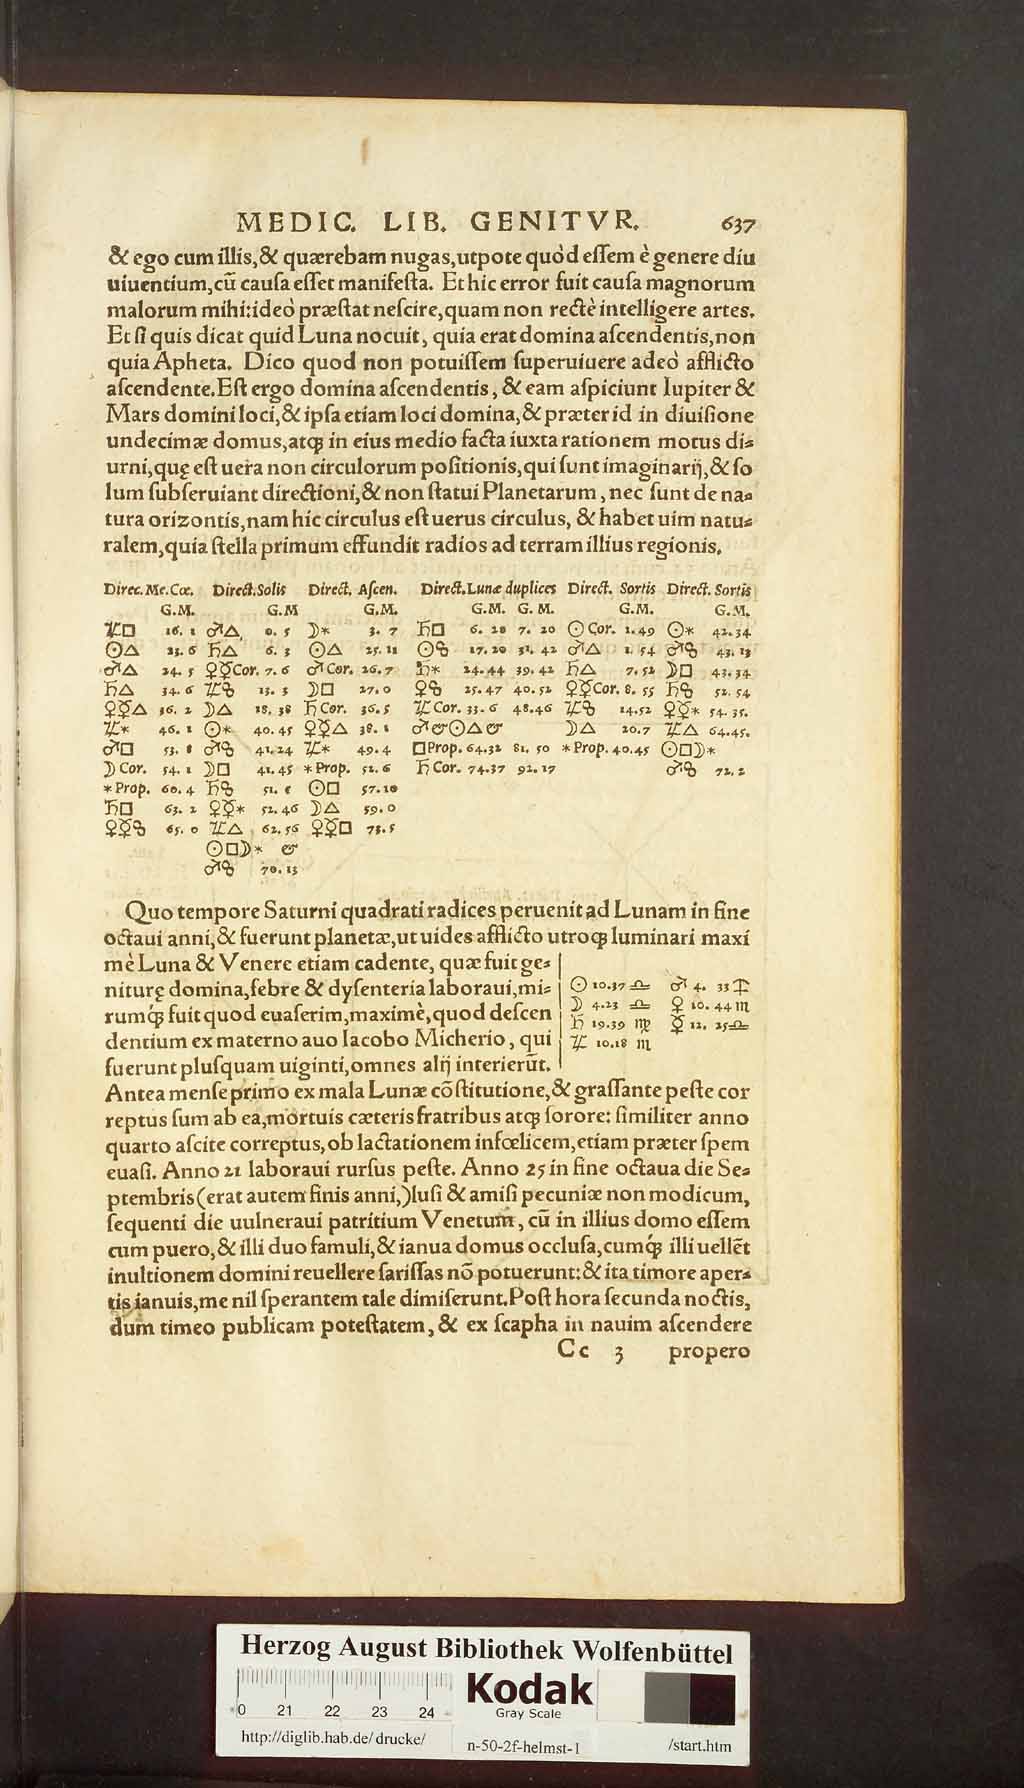 MEDIC. LIB. GENITVR. 637
& ego cum illis, & quærebam nugas, utpote quòd eſſem è genere diu
uiuentium, cū cauſa eſſet manifeſta. Et hic error fuit cauſa magnorum
malorum mihi: ideò præſtat neſcire, quam non rectè intelligere artes.
Et ſi quis dicat quid Luna nocuit, quia erat domina aſcendentis, non
quia Apheta. Dico quod non potuiſſem ſuperuiuere adeò afflicto
aſcendente. Eſt ergo domina aſcendentis, & eam aſpiciunt Iupiter &
Mars domini loci, & ipſa etiam loci domina, & præter id in diuiſione
undecimæ domus, atq̧ in eius medio facta iuxta rationem motus di⸗
urni, quę eſt uera non circulorum poſitionis, qui ſunt imaginarij, & ſo
lum ſubſeruiant directioni, & non ſtatui Planetarum, nec ſunt de na⸗
tura orizontis, nam hic circulus eſt uerus circulus, & habet uim natu⸗
ralem, quia ſtella primum effundit radios ad terram illius regionis.
Direc. Me. Cœ. Direct. Solis Direct. Aſcen. Direct. Lunæ duplices Direct. Sortis Direct. Sortis
G.M. G.M G.M. G.M. G.M. G.M. G.M.
♃□ 16. 1 ♂△ 0. 5 ☽* 3. 7 ♄□ 6. 20 7. 20 ☉Cor. 1. 49 ☉* 42. 34
☉△ 23. 6 ♄△ 6. 3 ☉△ 25. 11 ☉☍ 17. 20 31. 42 ♂△ 1. 54 ♂☍ 43. 13
♂△ 24. 5 ♀☿Cor. 7. 6 ♂Cor. 26. 7 ♄* 24. 44 39. 42 ♄△ 7. 52 ☽□ 43. 34
♄△ 34. 6 ♃☍ 13. 3 ☽□ 27. 0 ♀☍ 25. 47 40. 52 ♀☿Cor. 8. 55 ♄☍ 52. 54
♀☿△ 36. 2 ☽△ 18. 38 ♄Cor. 36. 5 ♃Cor. 33. 6 48. 46 ♃☍ 14. 52 ♀☿* 54. 35.
♃* 46. 1 ☉* 40. 45 ♀☿△ 38. 1 ♂&☉△& ☽△ 20. 7 ♃△ 64. 45.
♂□ 53. 8 ♂☍ 41. 24 ♃* 49. 4 □Prop. 64. 32 81. 50 *Prop. 40. 45 ☉□☽*
☽Cor. 54. 1 ☽□ 41. 45 *Prop. 52. 6 ♄Cor. 74. 37 92. 17 ♂☍ 72. 2
*Prop. 60. 4 ♄☍ 51. ☉□ 57. 10
♄□ 63. 2 ♀☿* 52. 46 ☽△ 59. 0
♀☿☍ 65. 0 ♃△ 62. 56 ♀☿□ 73. 5
☉□☽* &
♂☍ 70. 13
Quo tempore Saturni quadrati radices peruenit ad Lunam in fine
octaui anni, & fuerunt planetæ, ut uides afflicto utroq̧ luminari maxi
mè Luna & Venere etiam cadente, quæ fuit ge⸗
niturę domina, febre & dyſenteria laboraui, mi⸗
rumq́; fuit quod euaſerim, maximè, quod deſcen
dentium ex materno auo Iacobo Micherio, qui
fuerunt pluſquam uiginti, omnes alij interierūt.
☉ 10. 37 ♎ ♂ 4. 33 ♐
☽ 4. 23 ♎ ♀ 10. 44 ♏
♄ 19. 39 ♍ ☿ 12. 25 ♎
♃ 10. 18 ♏
Antea menſe primo ex mala Lunæ cōſtitutione, & graſſante peſte cor
reptus ſum ab ea, mortuis cæteris fratribus atq̧ ſorore: ſimiliter anno
quarto aſcite correptus, ob lactationem infœlicem, etiam præter ſpem
euaſi. Anno 21 laboraui rurſus peſte. Anno 25 in fine octaua die Se⸗
ptembris (erat autem finis anni,) luſi & amiſi pecuniæ non modicum,
ſequenti die uulneraui patritium Venetum, cū in illius domo eſſem
cum puero, & illi duo famuli, & ianua domus occluſa, cumq́; illi uellēt
inultionem domini reuellere ſariſſas nō potuerunt: & ita timore aper⸗
tis ianuis, me nil ſperantem tale dimiſerunt. Poſt hora ſecunda noctis,
dum timeo publicam poteſtatem, & ex ſcapha in nauim aſcendere
Cc 3 propero
Herzog August Bibliothek Wolfenbüttel
0 21 22 23 24
Kodak
Gray Scale
http://diglib.hab.de/drucke/ n-50-2f-helmst-1 /start.htm